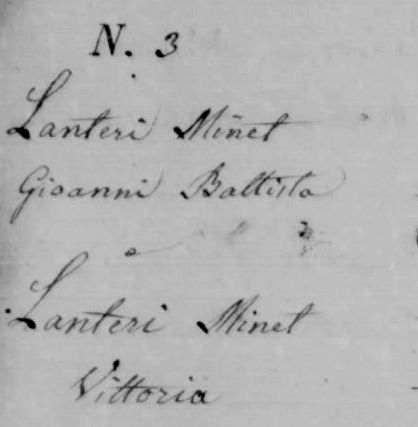 N. 3
Lanteri Minet
Gioanni Battista
e
Lanteri Minet
Vittoria